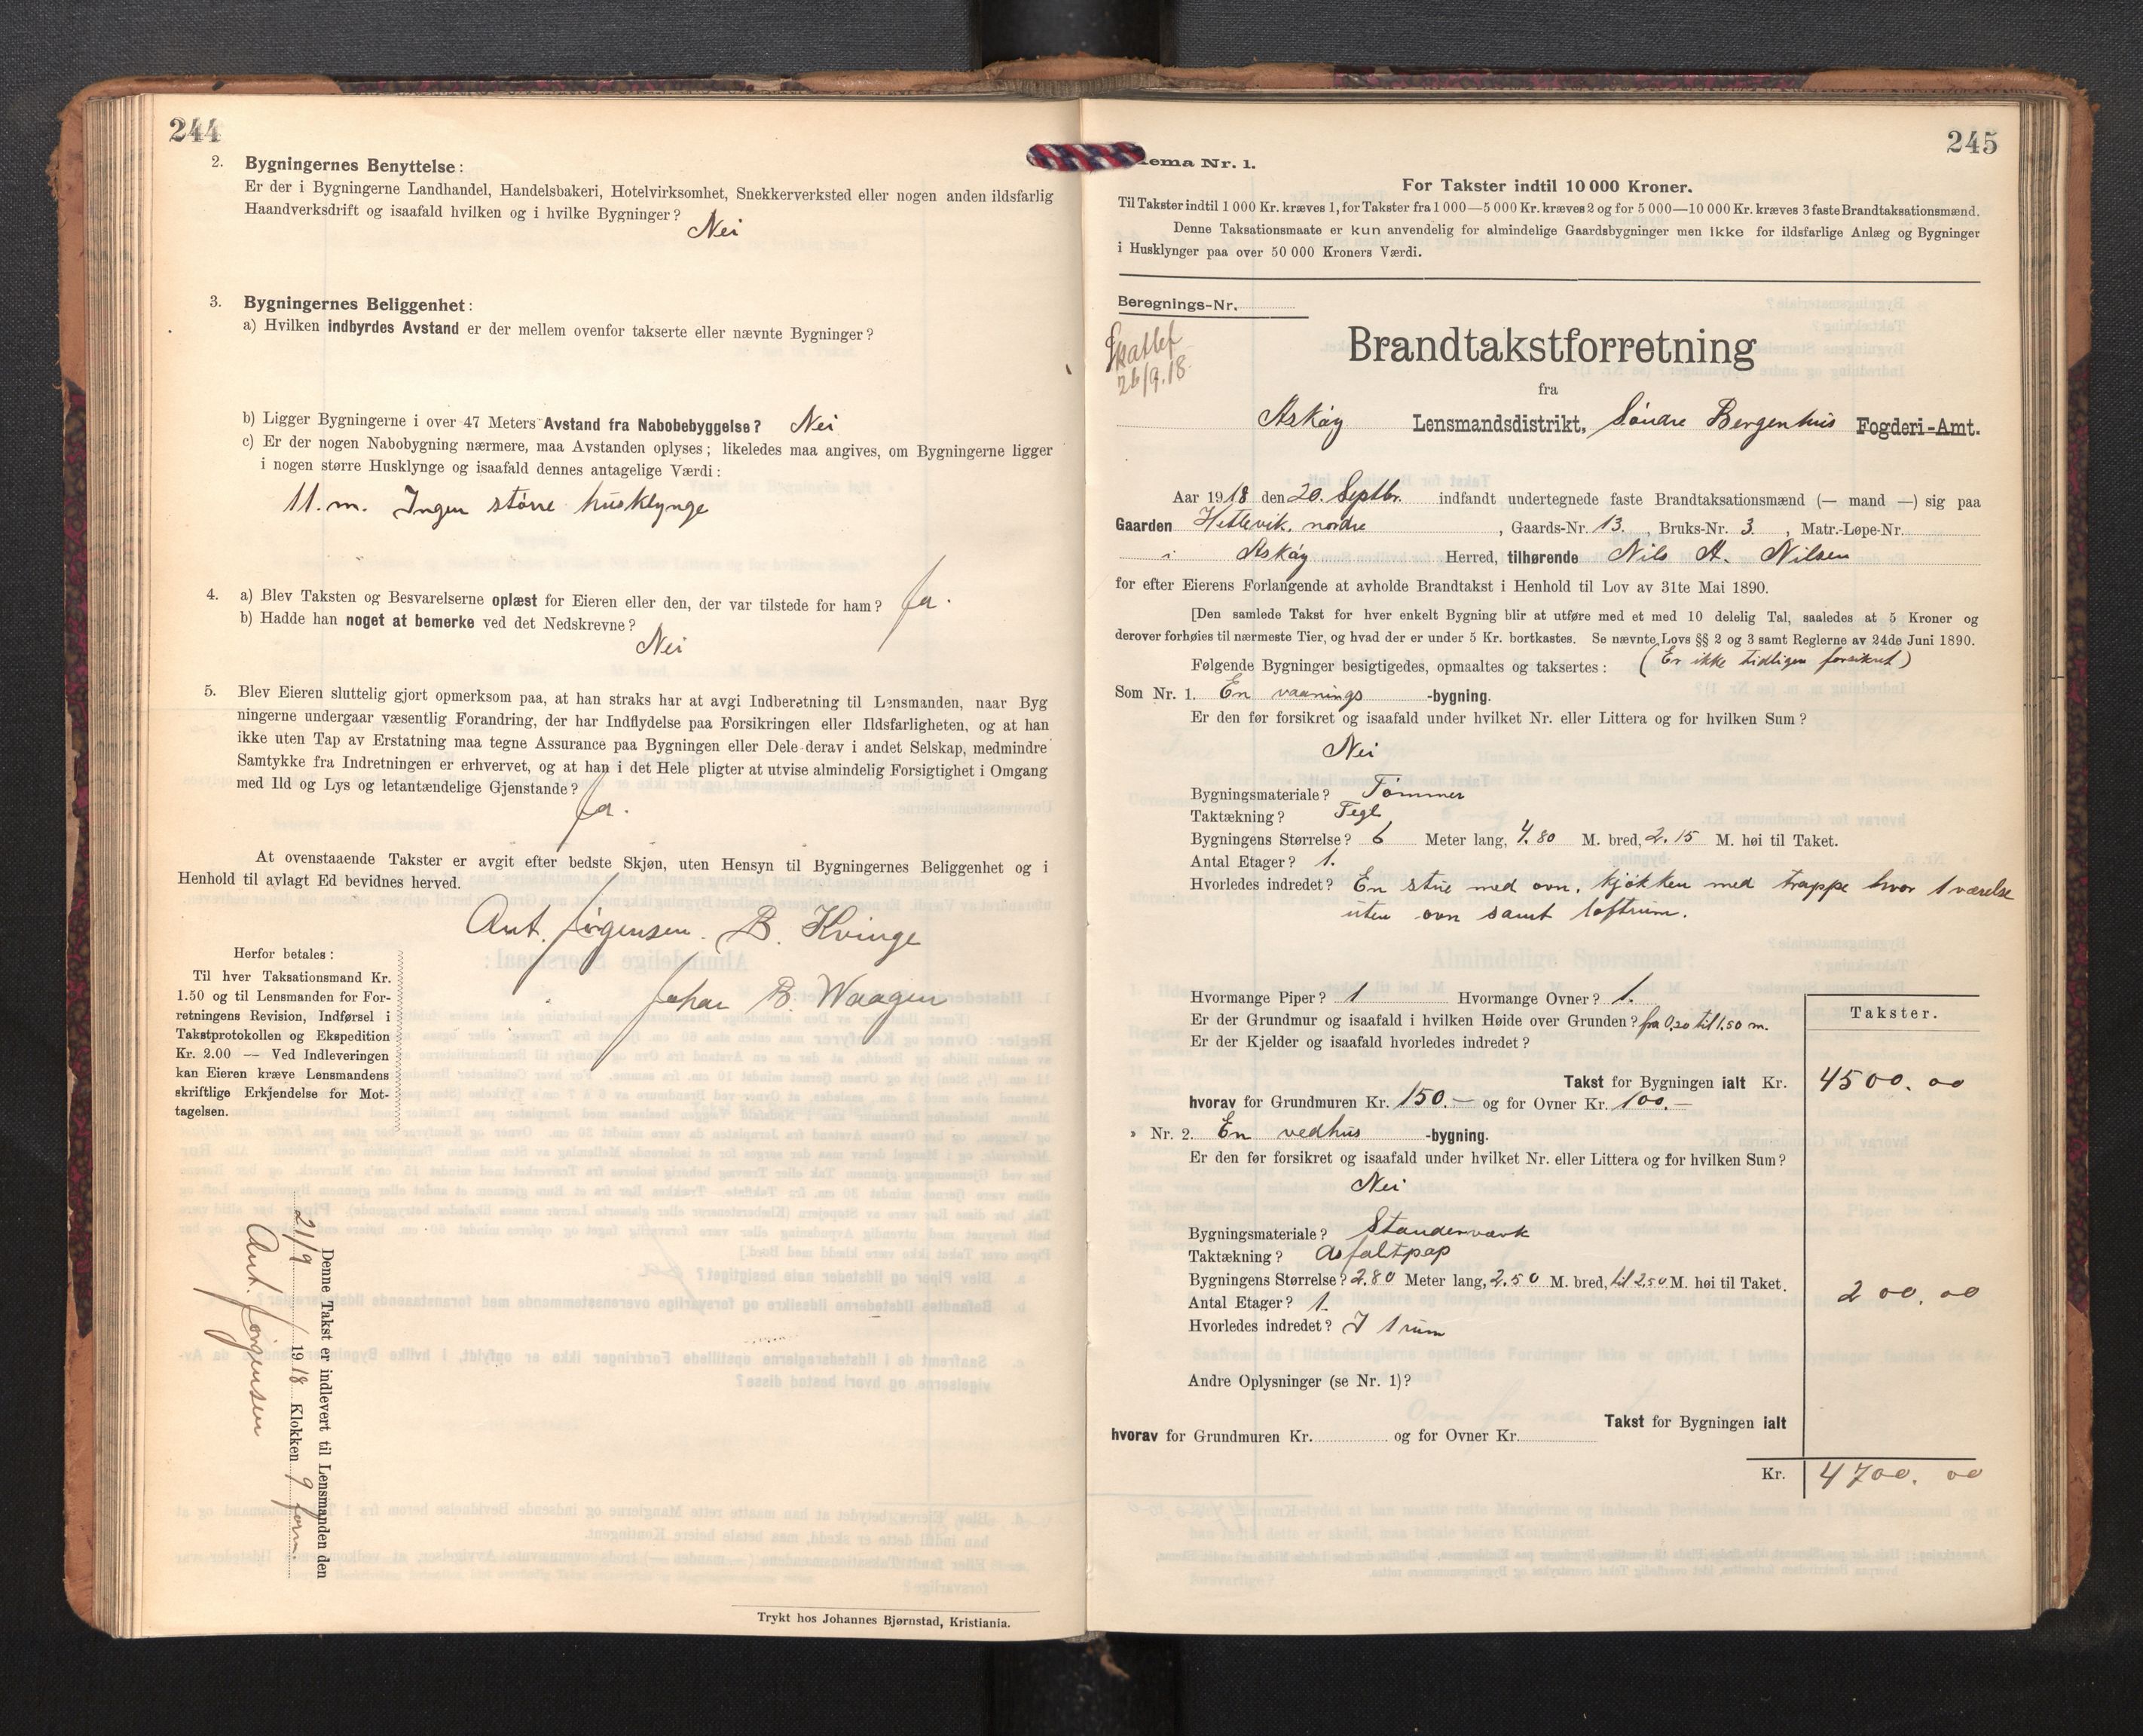 244
2. Bygningernes Benyttelse:
Er der i Bygningerne Landhandel, Handelsbakeri, Hotelvirksomhet, Snekkerverksted eller nogen anden ildsfarlig
Haandverksdrift og isaafald hvilken og i hvilke Bygninger?
Nei
3. Bygningernes Beliggenhet:
a) Hvilken indbyrdes Avstand er der mellem ovenfor takserte eller nævnte Bygninger?
b) Ligger Bygningerne i over 47 Meters Avstand fra Nabobebyggelse? Nei
c) Er der nogen Nabobygning nærmere, maa Avstanden oplyses; likeledes maa angives, om Bygningerne ligger
i nogen større Husklynge og isaafald dennes antagelige Værdi:
11. m. Ingen större husklynge
4. a) Blev Taksten og Besvarelserne oplæst for Eieren eller den, der var tilstede for ham? Ja.
b) Hadde han noget at bemerke ved det Nedskrevne?
Nei
5. Blev Eieren sluttelig gjort opmerksom paa, at han straks har at avgi Indberetning til Lensmanden, naar Byg
ningerne undergaar væsentlig Forandring, der har Indflydelse paa Forsikringen eller Ildsfarligheten, og at han
ikke uten Tap av Erstatning maa tegne Assurance paa Bygningen eller Dele derav i andet Selskap, medmindre
Samtykke fra Indretningen er erhvervet, og at han i det Hele pligter at utvise almindelig Forsigtighet i Omgang
med Ild og Lys og letantændelige Gjenstande?
Ja.
At ovenstaaende Takster er avgit efter bedste Skjøn, uten Hensyn til Bygningernes Beliggenhet og i
Henhold til avlagt Ed bevidnes herved.
Ant. Jörgensen. B. Kvinge
Johan B. Waagen
Herfor betales:
Til hver Taksationsmand Kr.
1.50 og til Lensmanden for For-
retningens Revision, Indførsel i
Takstprotokollen og Ekspedition
Kr. 2.00 — Ved Indleveringen
kan Eieren kræve Lensmandens
skriftlige Erkjendelse for Mot-
tagelsen.
Denne Takst er indlevert til Lensmanden den
21/9 1918 Klokken 9 form.
Ant. Jörgensen
Trykt hos Johannes Bjørnstad, Kristiania.
245
ema Nr. 1.
For Takster indtil 10 000 Kroner.
Til Takster indtil 1 000 Kr. kræves 1, for Takster fra 1 000—5 000 Kr. kræves 2 og for 5 000—10 000 Kr. kræves 3 faste Brandtaksationsmænd.
Denne Taksationsmaate er kun anvendelig for almindelige Gaardsbygninger men ikke for ildsfarlige Anlæg og Bygninger
i Husklynger paa over 50 000 Kroners Værdi.
Beregnings-Nr.
26/9.18
Brandtakstforretning
fra
Asköy Lensmandsdistrikt, Söndre Bergenhus Fogderi-Amt.
Aar 1918 den 20. Septbr. indfandt undertegnede faste Brandtaksationsmænd (— mand —) sig paa
Gaarden Hetlevik, nordre, Gaards-Nr. 13., Bruks-Nr. 3., Matr.-Løpe-Nr.
i Asköy Herred, tilhørende Nils A. Nilsen
for efter Eierens Forlangende at avholde Brandtakst i Henhold til Lov av 31te Mai 1890.
[Den samlede Takst for hver enkelt Bygning blir at utføre med et med 10 delelig Tal, saaledes at 5 Kroner og
derover forhøies til nærmeste Tier, og hvad der er under 5 Kr. bortkastes. Se nævnte Lovs §§ 2 og 3 samt Reglerne av 24de Juni 1890.
Følgende Bygninger besigtigedes, opmaaltes og taksertes: (Er ikke tidligere forsikret)
Som Nr. 1. En vaanings -bygning.
Er den før forsikret og isaafald under hvilket Nr. eller Littera og for hvilken Sum?
Nei
Bygningsmateriale? Tömmer
Taktækning? Tegl
Bygningens Størrelse? 6 Meter lang, 4.80 M. bred, 2.15 M. høi til Taket.
Antal Etager? 1.
Hvorledes indredet? En stue med ovn, kjökken med trappe hvor 1 værelse
uten ovn samt loftrum.
Hvormange Piper? 1 Hvormange Ovner? 1.
Er der Grundmur og isaafald i hvilken Høide over Grunden? fra 0,20 til 1.50 m.
Er der Kjelder og isaafald hvorledes indredet?
Takster.
Takst for Bygningen ialt Kr. 4500.00
hvorav for Grundmuren Kr. 150.— og for Ovner Kr. 100.—
» Nr. 2. En vedhus -bygning.
Er den før forsikret og isaafald under hvilket Nr. eller Littera og for hvilken Sum?
Nei
Bygningsmateriale? Standerværk
Taktækning? Asfaltpap
Bygningens Størrelse? 2.80 Meter lang, 2.50 M. bred, til 2.50 M. høi til Taket.
200.00
Antal Etager? 1.
Hvorledes indredet? I 1 rum
Andre Oplysninger (se Nr. 1)?
Takst for Bygningen ialt
hvorav for Grundmuren Kr. og for Ovner Kr.
Kr. 4700.00